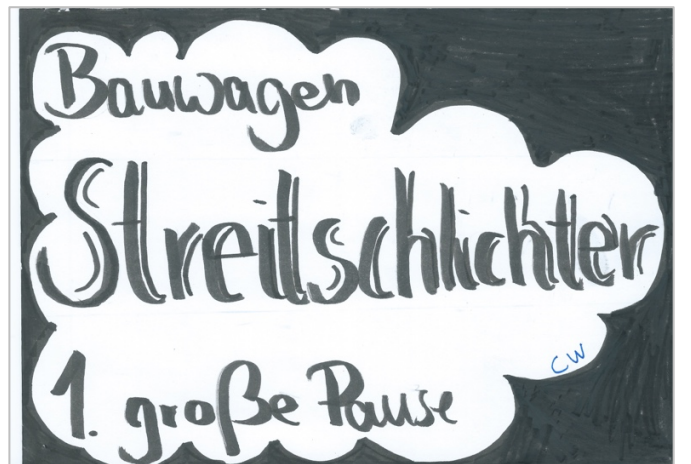 Bauwagen
Streitschlichter
CW
1. große Pause